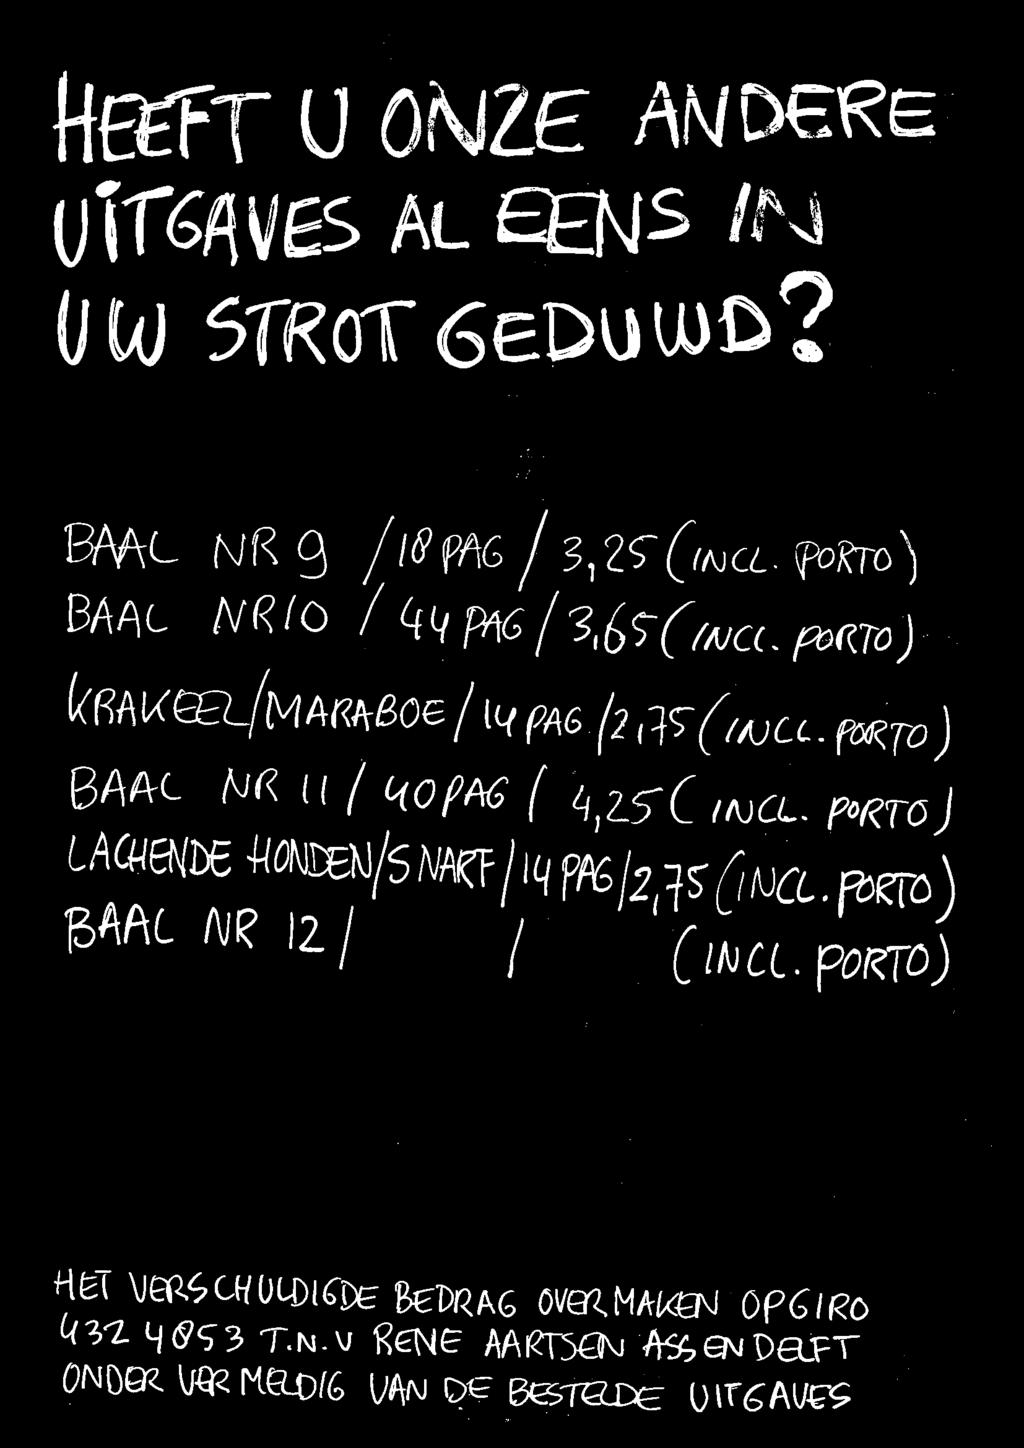 HEEFT U ONZE ANDERE
UITGAVES AL EENS IN
UW STROT GEDUWD?
BAAL NR 9 / 18 PAG / 3,25 (INCL. PORTO)
BAAL NR 10 / 44 PAG / 3,65 (INCL. PORTO)
KRAKEEL/MARABOE / 14 PAG / 2,75 (INCL. PORTO)
BAAL NR 11 / 40 PAG / 4,25 (INCL. PORTO)
LACHENDE HONDEN/SNARF / 14 PAG / 2,75 (INCL. PORTO)
BAAL NR 12 / / (INCL. PORTO)
HET VERSCHULDIGDE BEDRAG OVERMAKEN OP GIRO
432 4853 T.N.V RENE AARTSEN ASSENDELFT
ONDER VERMELDIG VAN DE BESTELDE UITGAVES